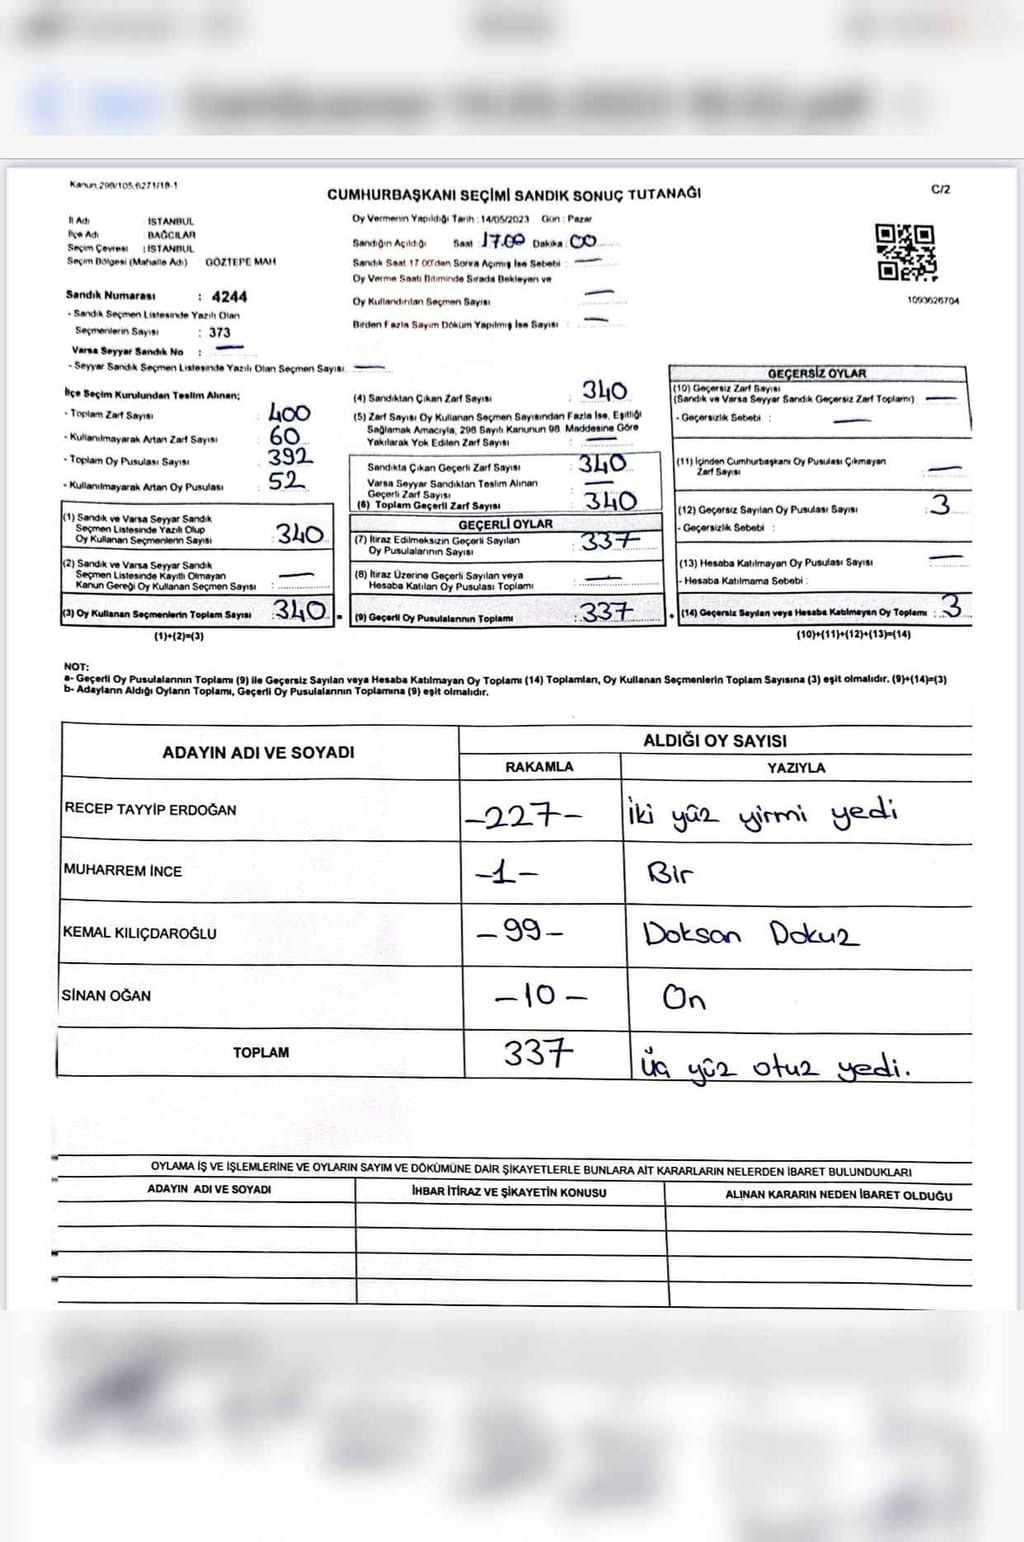 Kanun,298/105,6271/18-1
CUMHURBAŞKANI SEÇİMİ SANDIK SONUÇ TUTANAĞI
C/2
İl Adı İSTANBUL
İlçe Adı BAĞCILAR
Seçim Çevresi : İSTANBUL
Seçim Bölgesi (Mahalle Adı) GÖZTEPE MAH
Oy Vermenin Yapıldığı Tarih : 14/05/2023 Gün : Pazar
Sandığın Açıldığı Saat : 17.00 Dakika : 00
Sandık Saat 17 00'den Sonra Açılmış İse Sebebi : —
Oy Verme Saati Bitiminde Sırada Bekleyen ve
Oy Kullandırılan Seçmen Sayısı —
Birden Fazla Sayım Döküm Yapılmış İse Sayısı : —
1093626704
Sandık Numarası : 4244
- Sandık Seçmen Listesinde Yazılı Olan
Seçmenlerin Sayısı : 373
Varsa Seyyar Sandık No : —
- Seyyar Sandık Seçmen Listesinde Yazılı Olan Seçmen Sayısı: —
İlçe Seçim Kurulundan Teslim Alınan;
- Toplam Zarf Sayısı : 400
- Kullanılmayarak Artan Zarf Sayısı : 60
- Toplam Oy Pusulası Sayısı : 392
- Kullanılmayarak Artan Oy Pusulası : 52
(1) Sandık ve Varsa Seyyar Sandık
Seçmen Listesinde Yazılı Olup
Oy Kullanan Seçmenlerin Sayısı : 340
(2) Sandık ve Varsa Seyyar Sandık
Seçmen Listesinde Kayıtlı Olmayan
Kanun Gereği Oy Kullanan Seçmen Sayısı : —
(3) Oy Kullanan Seçmenlerin Toplam Sayısı : 340
(1)+(2)=(3)
(4) Sandıktan Çıkan Zarf Sayısı : 340
(5) Zarf Sayısı Oy Kullanan Seçmen Sayısından Fazla İse, Eşitliği
Sağlamak Amacıyla, 298 Sayılı Kanunun 98 Maddesine Göre
Yakılarak Yok Edilen Zarf Sayısı : —
Sandıkta Çıkan Geçerli Zarf Sayısı : 340
Varsa Seyyar Sandıktan Teslim Alınan
Geçerli Zarf Sayısı : —
(6) Toplam Geçerli Zarf Sayısı : 340
GEÇERLİ OYLAR
(7) İtiraz Edilmeksizin Geçerli Sayılan
Oy Pusulalarının Sayısı : 337
(8) İtiraz Üzerine Geçerli Sayılan veya
Hesaba Katılan Oy Pusulası Toplamı : —
(9) Geçerli Oy Pusulalarının Toplamı : 337
GEÇERSİZ OYLAR
(10) Geçersiz Zarf Sayısı
(Sandık ve Varsa Seyyar Sandık Geçersiz Zarf Toplamı) : —
- Geçersizlik Sebebi : —
(11) İçinden Cumhurbaşkanı Oy Pusulası Çıkmayan
Zarf Sayısı : —
(12) Geçersiz Sayılan Oy Pusulası Sayısı : 3
- Geçersizlik Sebebi :
(13) Hesaba Katılmayan Oy Pusulası Sayısı : —
- Hesaba Katılmama Sebebi :
(14) Geçersiz Sayılan veya Hesaba Katılmayan Oy Toplamı : 3
(10)+(11)+(12)+(13)=(14)
NOT:
a- Geçerli Oy Pusulalarının Toplamı (9) ile Geçersiz Sayılan veya Hesaba Katılmayan Oy Toplamı (14) Toplamları, Oy Kullanan Seçmenlerin Toplam Sayısına (3) eşit olmalıdır. (9)+(14)=(3)
b- Adayların Aldığı Oyların Toplamı, Geçerli Oy Pusulalarının Toplamına (9) eşit olmalıdır.
ADAYIN ADI VE SOYADI
ALDIĞI OY SAYISI
RAKAMLA YAZIYLA
RECEP TAYYİP ERDOĞAN -227- İki yüz yirmi yedi
MUHARREM İNCE -1- Bir
KEMAL KILIÇDAROĞLU -99- Doksan Dokuz
SİNAN OĞAN -10- On
TOPLAM 337 Üç yüz otuz yedi.
OYLAMA İŞ VE İŞLEMLERİNE VE OYLARIN SAYIM VE DÖKÜMÜNE DAİR ŞİKAYETLERLE BUNLARA AİT KARARLARIN NELERDEN İBARET BULUNDUKLARI
ADAYIN ADI VE SOYADI İHBAR İTİRAZ VE ŞİKAYETİN KONUSU ALINAN KARARIN NEDEN İBARET OLDUĞU